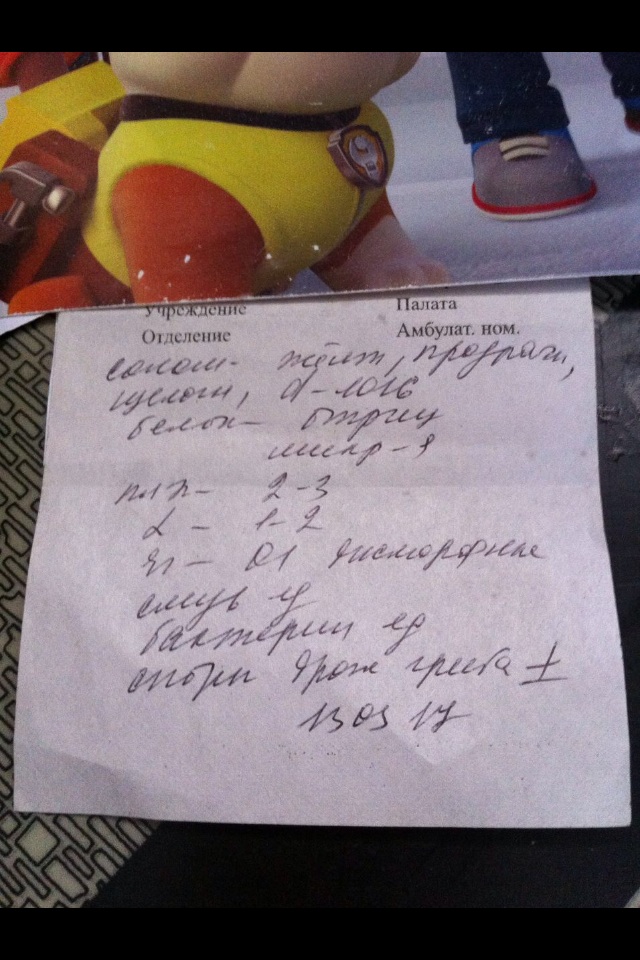 Учреждение Палата
Отделение Амбулат. ном.
солом- жёлт, прозрачн,
щелочн, d-1016
белок- отриц
пл эп- 2-3
L - 1-2
Эр- 01 дисморфные
слизь ед
бактерии ед
споры дрож гриба ±
13 03 17